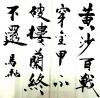 黄沙百戰
穿金甲不
破樓蘭終
不還